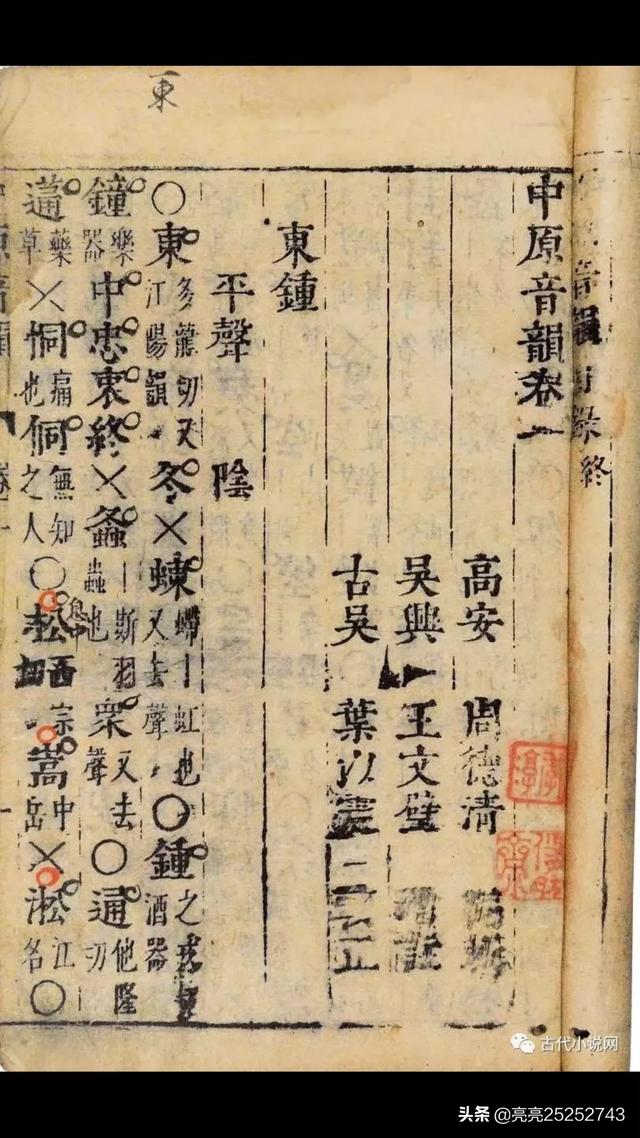 東
中原音韻目錄終
中原音韻卷一
高安 周德清
吳興 王文璧
古吳 葉以震
東鍾
平聲 陰
○東多籠切又江陽韻冬×蝀螮丨虹也又去聲○鍾酒器
鐘樂器中忠衷終×螽丨斯羽蟲也衆又去聲○通他隆切
蓪藥草×恫痛也侗無知之人○松 嵩中岳×淞江名○
古代小说网
头条 @亮亮25252743